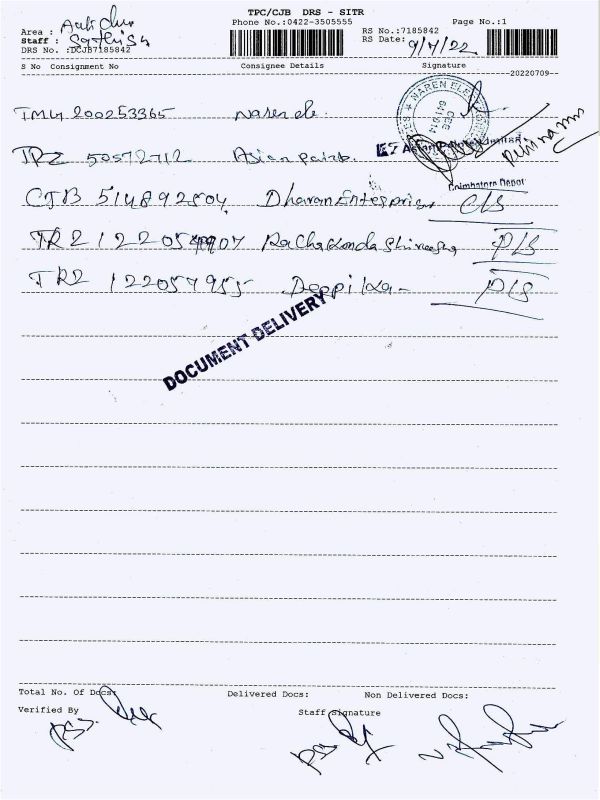 TPC/CJB DRS - SITR
Phone No.:0422-3505555
Page No.:1
Area :
Staff : Sathish
DRS No. :DCJB7185842
RS No.:7185842
RS Date: 9/7/22
S No Consignment No Consignee Details Signature
--20220709--
TMU 200253365 Naren ele
★ NAREN ELE
TRZ 50572712 Asian paints.
Coimbatore Depot
CJB 514892504 Dharan Enterprises C/S
TR2 122054907 Rachakonda P/S
TR2 122057955 Deepika - P/S
DOCUMENT DELIVERY
Total No. Of Docs: Delivered Docs: Non Delivered Docs:
Verified By
Staff Signature